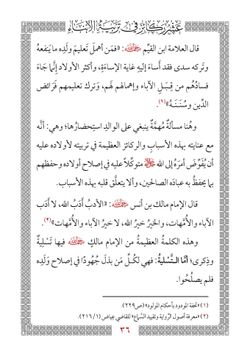 عشر ركائز في تربية الأبناء
قال العلامة ابن القيِّم ﵀: «فمَن أهملَ تعليمَ ولَدِه ما يَنفعهُ
وتَركه سدى فقد أساءَ إليهِ غايةَ الإساءَةِ، وأكثر الأولادِ إنَّما جَاءَ
فسادُهُم من قِبَـلِ الآباءِ وإهمالهِم لهُم، وتركِ تعليمهِم فَرائـضَ
الدِّين وسُنَنَـهُ»(١).
وهُنا مسألةٌ مُهمَّةٌ ينبغي على الوالدِ استِحضارُها؛ وهي: أنَّه
مع عنايته بهذه الأسبابِ والركائز العظيمة في تربيته لأولاده عليه
أن يُفَوِّض أمرَهُ إلى الله ﷻ متوكِّلاً عليه في إصلاحِ أولاده وحفظهم
بمَا يحفظُ به عبادَه الصالحين، وألا يتعلَّق قلبه بهذه الأسباب.
قال الإمام مالك بن أنس ﵀: «الأدبُ أدَبُ الله، لا أدَبُ
الآباء والأُمَّهات، والخيرُ خيرُ الله، لا خيرُ الآباء والأُمَّهات»(٢).
وهذه الكلمةُ العظيمةُ من الإمام مالكٍ ﵀ فيها تَسْليةٌ
وذِكرى؛ أمَّا التَّسْليةُ: فهي لكُـلِّ مَن بذَل جُهُودًا في إصلاحِ ولَدِه
فلم يصلُحُوا.
(١) «تحفة المودود بأحكام المولود» (ص٢٢٩).
(٢) «معرفة أصول الرِّواية وتقييد السَّماع» للقاضي عِياض (٢١٦/١).
٣٦